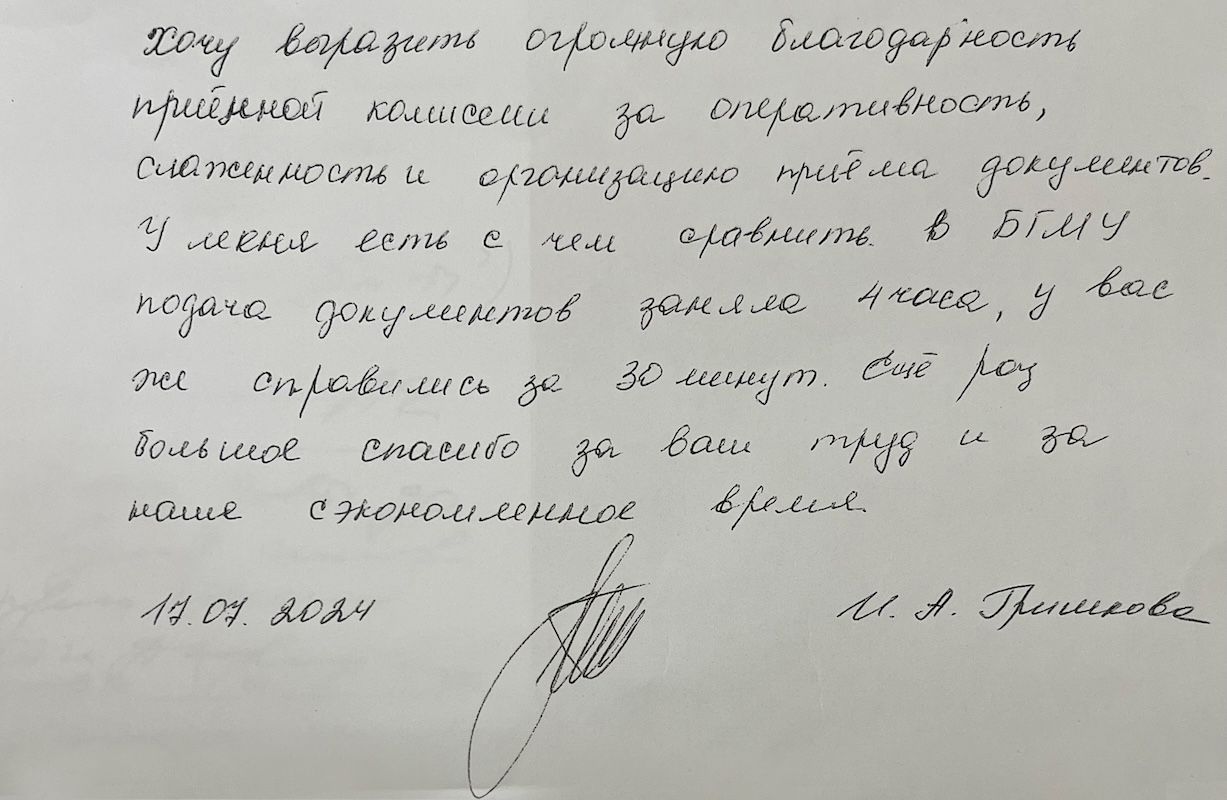 Хочу выразить огромную благодарность
приёмной комиссии за оперативность,
слаженность и организацию приёма документов.
У меня есть с чем сравнить. В БГМУ
подача документов заняла 4 часа, у вас
же справились за 30 минут. Ещё раз
большое спасибо за ваш труд и за
наше сэкономленное время.
17.07.2024 И. А. Гришкова